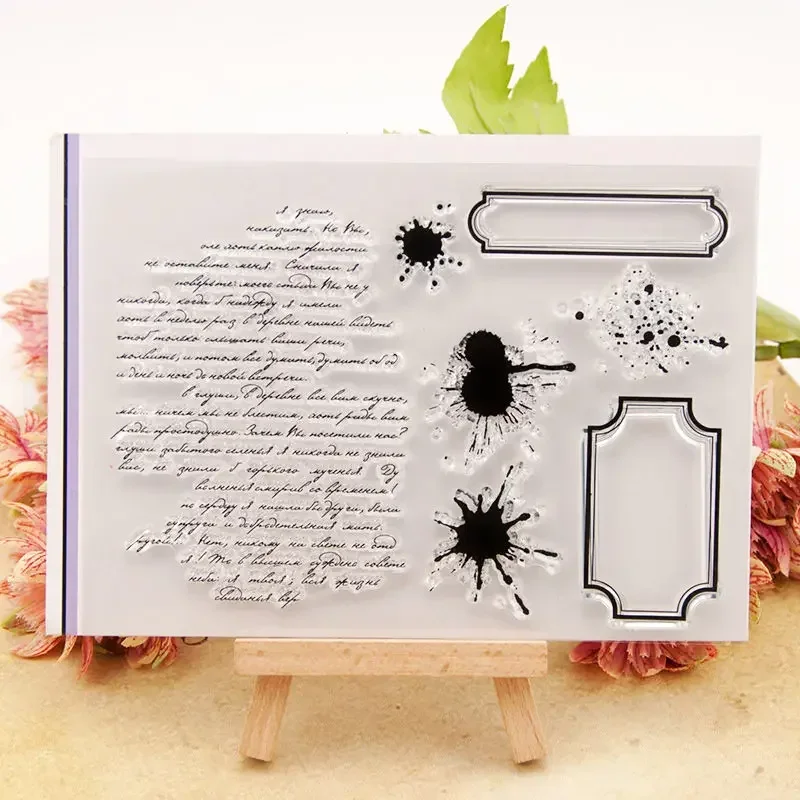 я знаю,
наказать. Но Вы,
оле хоть каплю жалости
не оставите меня. Сначала я
поверьте: моего стыда Вы не у
никогда, когда б надежду я имела
хоть в неделю раз в деревне нашей видеть
чтоб только слышать ваши речи,
молвить, и потом все думать, думать об од
и день и ночь до новой встречи.
в глуши, в деревне все вам скучно,
мы... ничем мы не блестим, хоть рады вам
рады простодушно. Зачем Вы посетили нас?
глуши забытого селенья я никогда не знала
вас, не знала б горького мученья. Ду
волненья смирив со временем!
по сердцу я нашла бы друга, была
супруга и добродетельная мать.
другой! Нет, никому на свете не отд
я! То в вышнем суждено совете
неба: я твоя; вся жизнь
свиданья вер